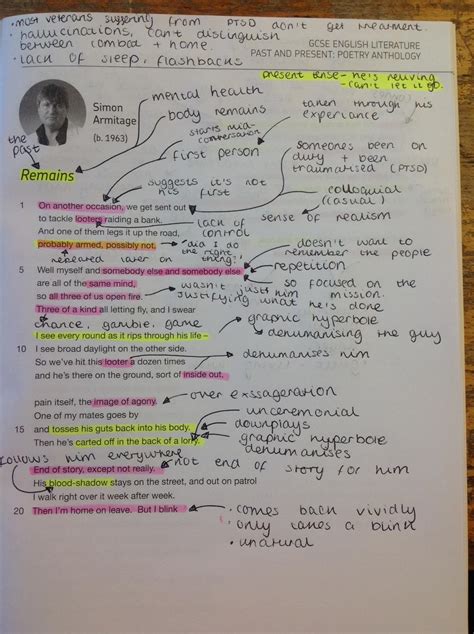 • most veterans suffering from PTSD don't get treatment.
• hallucinations, can't distinguish
between combat + home.
• lack of sleep, flashbacks
GCSE ENGLISH LITERATURE
PAST AND PRESENT: POETRY ANTHOLOGY
present tense - he's reliving
- can't let it go.
Simon
Armitage
(b. 1963)
mental health
body remains
taken through his
experience
starts mid-
conversation
first person
the
past
Remains
suggests it's not
his first
someones been on
duty + been
traumatised (PTSD)
colloquial
(casual)
1 On another occasion, we get sent out
to tackle looters raiding a bank.
And one of them legs it up the road,
probably armed, possibly not.
lack of
sense of realism
did I do
the right
thing?
repeated later on
doesn't want to
remember the people
repetition
5 Well myself and somebody else and somebody else
are all of the same mind,
so all three of us open fire.
Three of a kind all letting fly, and I swear
wasn't just him
justifying what he's done
so focused on the
mission.
chance, gamble, game
graphic hyperbole
dehumanising the guy
I see every round as it rips through his life –
10 I see broad daylight on the other side.
So we've hit this looter a dozen times
and he's there on the ground, sort of inside out,
dehumanises him
pain itself, the image of agony.
One of my mates goes by
15 and tosses his guts back into his body.
Then he's carted off in the back of a lorry.
over exssageration
unceremonial
downplays
graphic hyperbole
dehumanises
follows him everywhere
End of story, except not really.
not end of story for him
His blood-shadow stays on the street, and out on patrol
I walk right over it week after week.
20 Then I'm home on leave. But I blink
• comes back vividly
• only takes a blink
• unatural